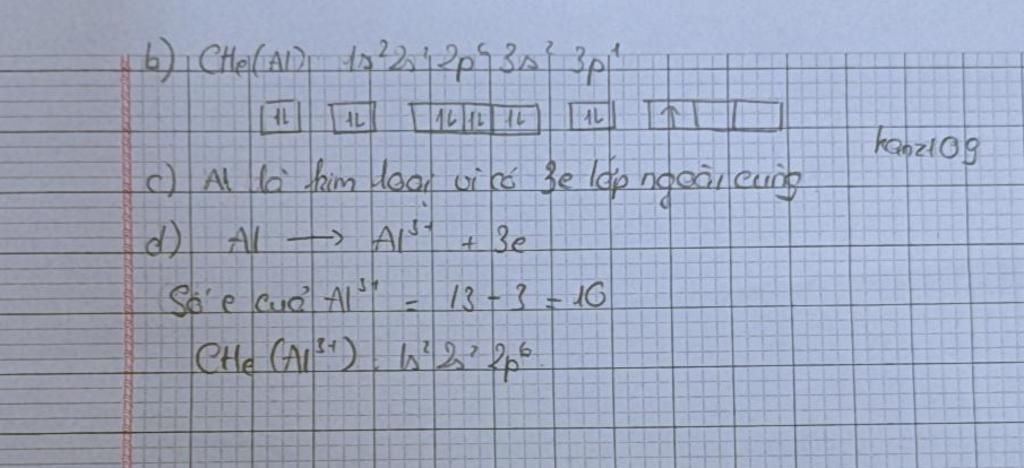 b) CHe(Al) 1s² 2s² 2p⁶ 3s² 3p¹
↑↓ ↑↓ ↑↓ ↑↓ ↑↓ ↑↓ ↑
hanz109
c) Al là kim loại vì có 3e lớp ngoài cùng
d) Al → Al³⁺ + 3e
Số e của Al³⁺ = 13 - 3 = 10
CHe (Al³⁺) : 1s² 2s² 2p⁶